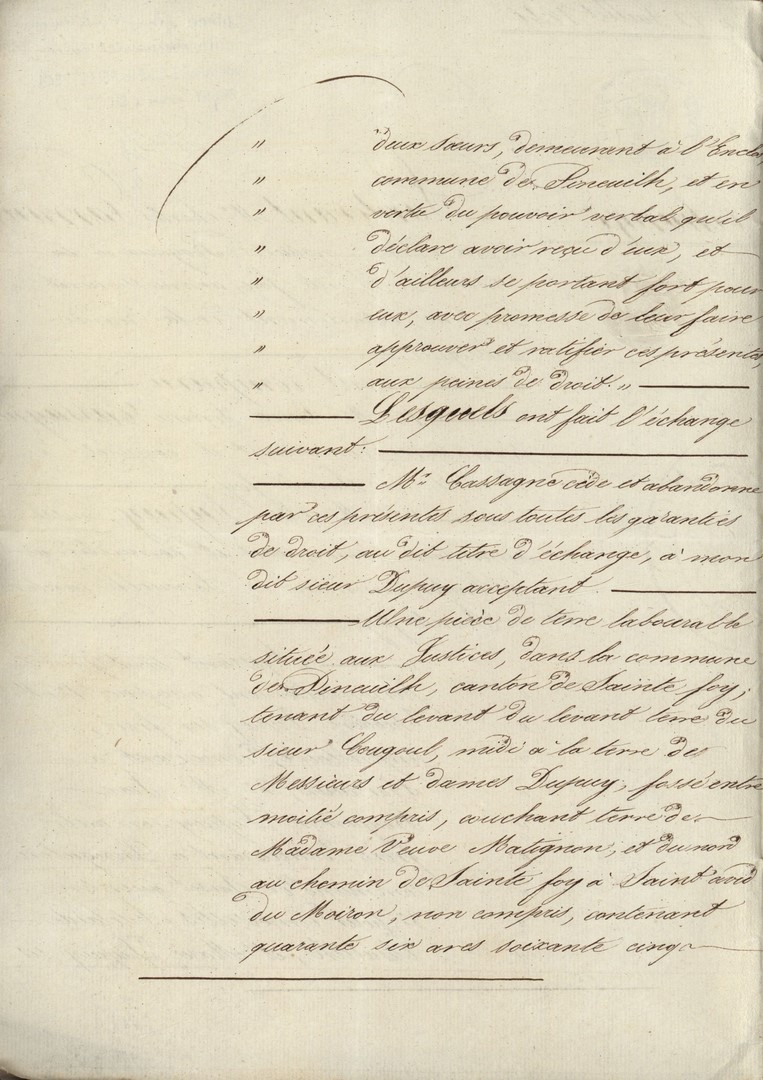 " deux sœurs, demeurant à l'Enclos,
" commune de Pineuilh, et en
" vertu du pouvoir verbal qu'il
" déclare avoir reçu d'eux, et
" d'ailleurs se portant fort pour
" eux, avec promesse de leur faire
" approuver et ratifier ces présentes,
" aux peines de droit. "
Lesquels ont fait l'échange
suivant:
Mr. Cassagne cède et abandonne
par ces présentes sous toutes les garanties
de droit, au dit titre d'échange, à mon
dit sieur Dupuy acceptant.
Une pièce de terre labourable
située aux Justices, dans la commune
de Pineuilh, canton de Sainte foy;
tenant du levant du levant terre du
sieur Cougoul, midi à la terre de
Messieurs et dames Dupuy, fossé entre
moitié compris, couchant terre de
Madame Veuve Matignon, et du nord
au chemin de Sainte foy à Saint avid
du Moiron, non compris, contenant
quarante six ares soixante cinq